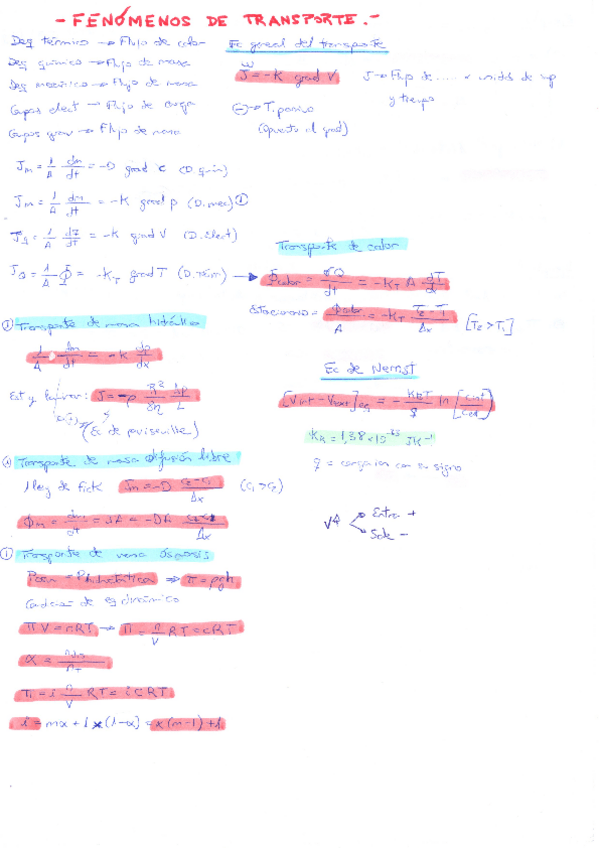 - FENÓMENOS DE TRANSPORTE.-
Deq térmico → Flujo de calor
Deq químico → Flujo de masa
Deq mecánico → Flujo de masa
Campos elect → Flujo de carga
Campos grav → Flujo de masa
Ec gneal del transporte
J = -K grad V
J → Flujo de ..... unidad de sup y tiempo
⊖ → T. pasivo
(opuesto al grad)
Jm = 1/A dm/dt = -D grad c (D. quím)
Jm = 1/A dm/dt = -K grad p (D. mec) ①
Jq = 1/A dq/dt = -K grad V (D. elect)
JQ = 1/A Φ = -KT grad T (D. térm) →
Transporte de calor
Φcalor = δQ/dt = -KT A dT/dx
Estacionario → Φcalor/A = -KT T2 - T1/Δx [T2 > T1]
① Transporte de masa hidráulico
1/A dm/dt = -K dp/dx
Est y laminar: J = -ρ R²/8η Δp/L
(Ec de poiseuille)
Ec de Nernst
[Vint - Vext]eq = - KBT/q ln [cint/cext]
KB = 1,38×10⁻²³ JK⁻¹
q = carga ion con su signo
① Transporte de masa difusión libre
1 ley de Fick Jm = -D c2-c1/Δx (c1 > c2)
Φm = dm/dt = JA = -DA c2-c1/Δx
V≠ Entra +
Sale -
① Transporte de masa ósmosis
Posm = Phidrostática ⇒ π = ρgh
Condición de eq dinámico
πV = nRT → π = n/V RT = cRT
α = ndis/nT
π = i n/V RT = i c RT
i = mα + 1 × (1-α) = α(m-1) + 1